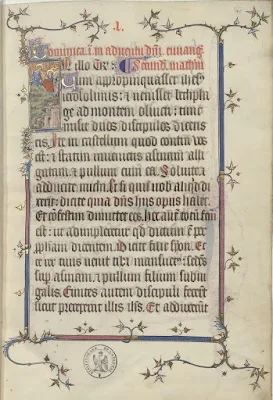 .I.
Dominica .i. in adventu dñi. euvang
Jllo Tre: Secund. matheū
Cum appropinquasset ihc
ierosolimis: et venisset bethpha
ge ad montem oliveti: tunc
misit duos discipulos dicens
eis. Ite in castellum quod contra vos
est: et statim invenietis asinam alli
gatam: et pullum cum ea. Solvite: et
adducite michi. Et si quis vob aliqd di
xerit: dicite quia dñs hiis opus habet.
Et cōfestim dimittet eos. hoc autē totū fcm
est: ut adimpleretur qd dictum est p
pphām dicentem. Dicite filie syon. Ecce
rex tuus venit tibi mansuetus: sedēs
sup asinam: et pullum filium subiu
galis. Euntes autem discipuli fecerūt
sicut precepit illis ihs. Et adduxerūt